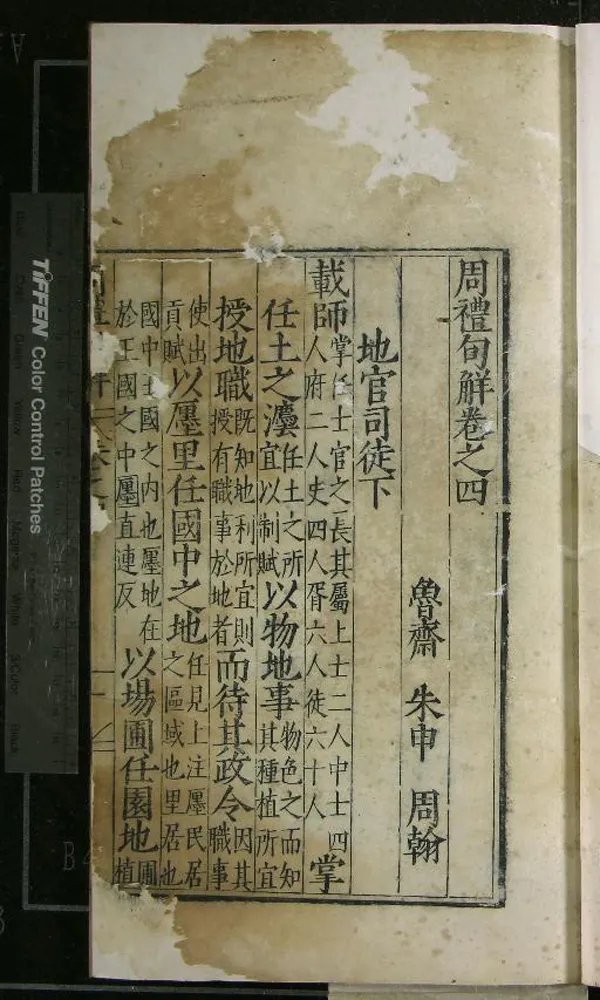 周禮句觧卷之四
魯齋 朱申 周翰
地官司徒下
載師掌任土官之長其屬上士二人中士四人府二人史四人胥六人徒六十人掌
任土之灋任土之所宜以制賦以物地事物色之而知其種植所宜
授地職既知地利所宜則授有職事於地者而待其政令因其職事
使出貢賦以廛里任國中之地任見上注廛民居之區域也里居也
國中王國之内也廛地在於王國之中廛直連反以場圃任園地圃植
TIFFEN Color Control Patches